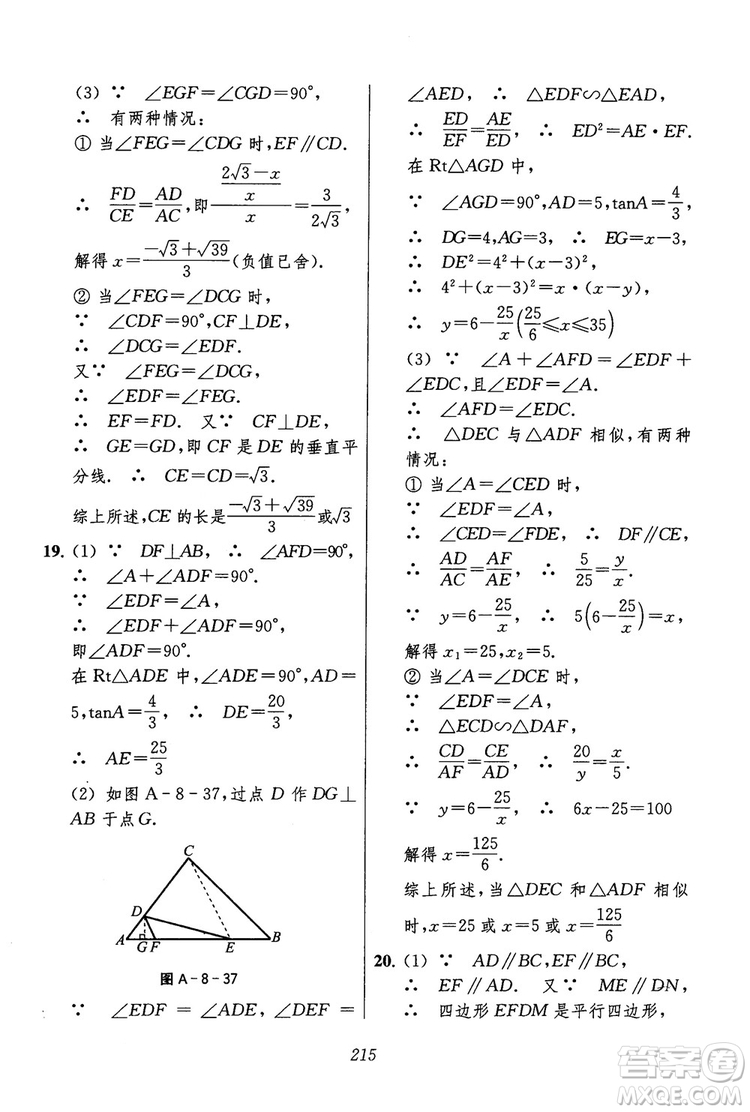 (3) ∵ ∠EGF=∠CGD=90°,
∴ 有两种情况:
① 当∠FEG=∠CDG 时,EF∥CD.
∴ FD/CE=AD/AC,即((2√3-x)/x)/x=3/(2√3),
解得 x=(-√3+√39)/3(负值已舍).
② 当∠FEG=∠DCG 时,
∵ ∠CDF=90°,CF⊥DE,
∴ ∠DCG=∠EDF.
又∵ ∠FEG=∠DCG,
∴ ∠EDF=∠FEG.
∴ EF=FD. 又∵ CF⊥DE,
∴ GE=GD,即 CF 是 DE 的垂直平
分线. ∴ CE=CD=√3.
综上所述,CE 的长是(-√3+√39)/3或√3
19. (1) ∵ DF⊥AB, ∴ ∠AFD=90°.
∴ ∠A+∠ADF=90°.
∵ ∠EDF=∠A,
∴ ∠EDF+∠ADF=90°,
即∠ADF=90°.
在 Rt△ADE 中,∠ADE=90°,AD=
5,tanA=4/3, ∴ DE=20/3,
∴ AE=25/3
(2) 如图 A-8-37,过点 D 作 DG⊥
AB 于点 G.
C
D
A G F E B
图 A-8-37
∵ ∠EDF = ∠ADE, ∠DEF =
∠AED, ∴ △EDF∽△EAD,
∴ ED/EF=AE/ED. ∴ ED²=AE·EF.
在 Rt△AGD 中,
∵ ∠AGD=90°,AD=5,tanA=4/3,
∴ DG=4,AG=3, ∴ EG=x-3.
∴ DE²=4²+(x-3)².
∴ 4²+(x-3)²=x·(x-y),
∴ y=6-25/x(25/6≤x≤35)
(3) ∵ ∠A+∠AFD=∠EDF+
∠EDC,且∠EDF=∠A.
∴ ∠AFD=∠EDC.
∴ △DEC 与△ADF 相似,有两种
情况:
① 当∠A=∠CED 时,
∵ ∠EDF=∠A,
∴ ∠CED=∠FDE, ∴ DF∥CE.
∴ AD/AC=AF/AE. ∴ 5/25=y/x.
∵ y=6-25/x, ∴ 5(6-25/x)=x,
解得 x₁=25,x₂=5.
② 当∠A=∠DCE 时,
∵ ∠EDF=∠A,
∴ △ECD∽△DAF,
∴ CD/AF=CE/AD, ∴ 20/y=x/5.
∵ y=6-25/x ∴ 6x-25=100
解得 x=125/6.
综上所述,当△DEC 和△ADF 相似
时,x=25 或 x=5 或 x=125/6
20. (1) ∵ AD∥BC,EF∥BC,
∴ EF∥AD. 又∵ ME∥DN,
∴ 四边形 EFDM 是平行四边形,
215
答案圈